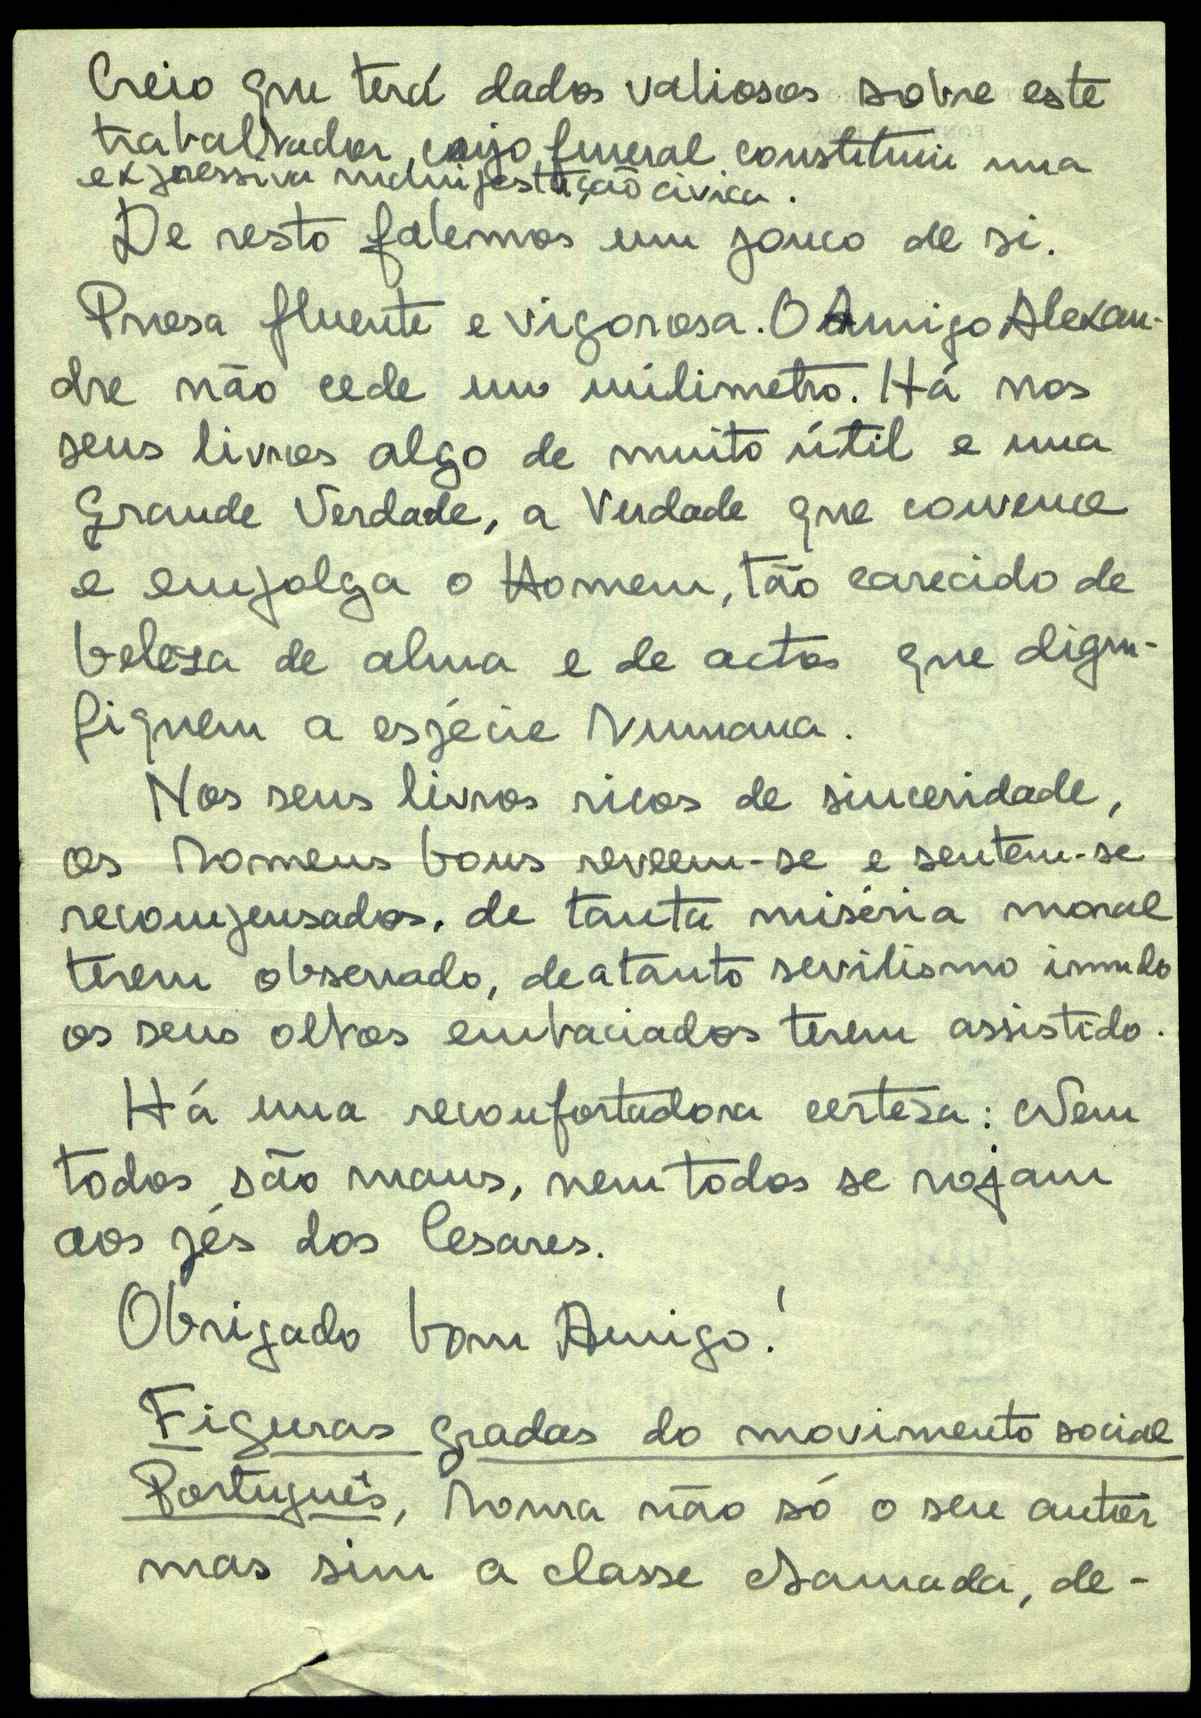 Creio que terá dados valiosos sobre este
trabalhador, cujo funeral constituiu uma
expressiva manifestação civica.
De resto falemos um pouco de si.
Prosa fluente e vigorosa. O Amigo Alexan-
dre não cede um milimetro. Há nos
seus livros algo de muito útil e uma
Grande Verdade, a Verdade que convence
e empolga o Homem, tão carecido de
beleza de alma e de actos que digni-
fiquem a espécie Humana.
Nos seus livros ricos de sinceridade,
os homens bons reveem-se e sentem-se
recompensados, de tanta miséria moral
terem observado, de a tanto servilismo imundo
os seus olhos embaciados terem assistido.
Há uma reconfortadora certeza: Nem
todos são maus, nem todos se rojam
aos pés dos Cesares.
Obrigado bom Amigo!
Figuras gradas do movimento social
Português, honra não só o seu autor
mas sim a classe chamada, de-